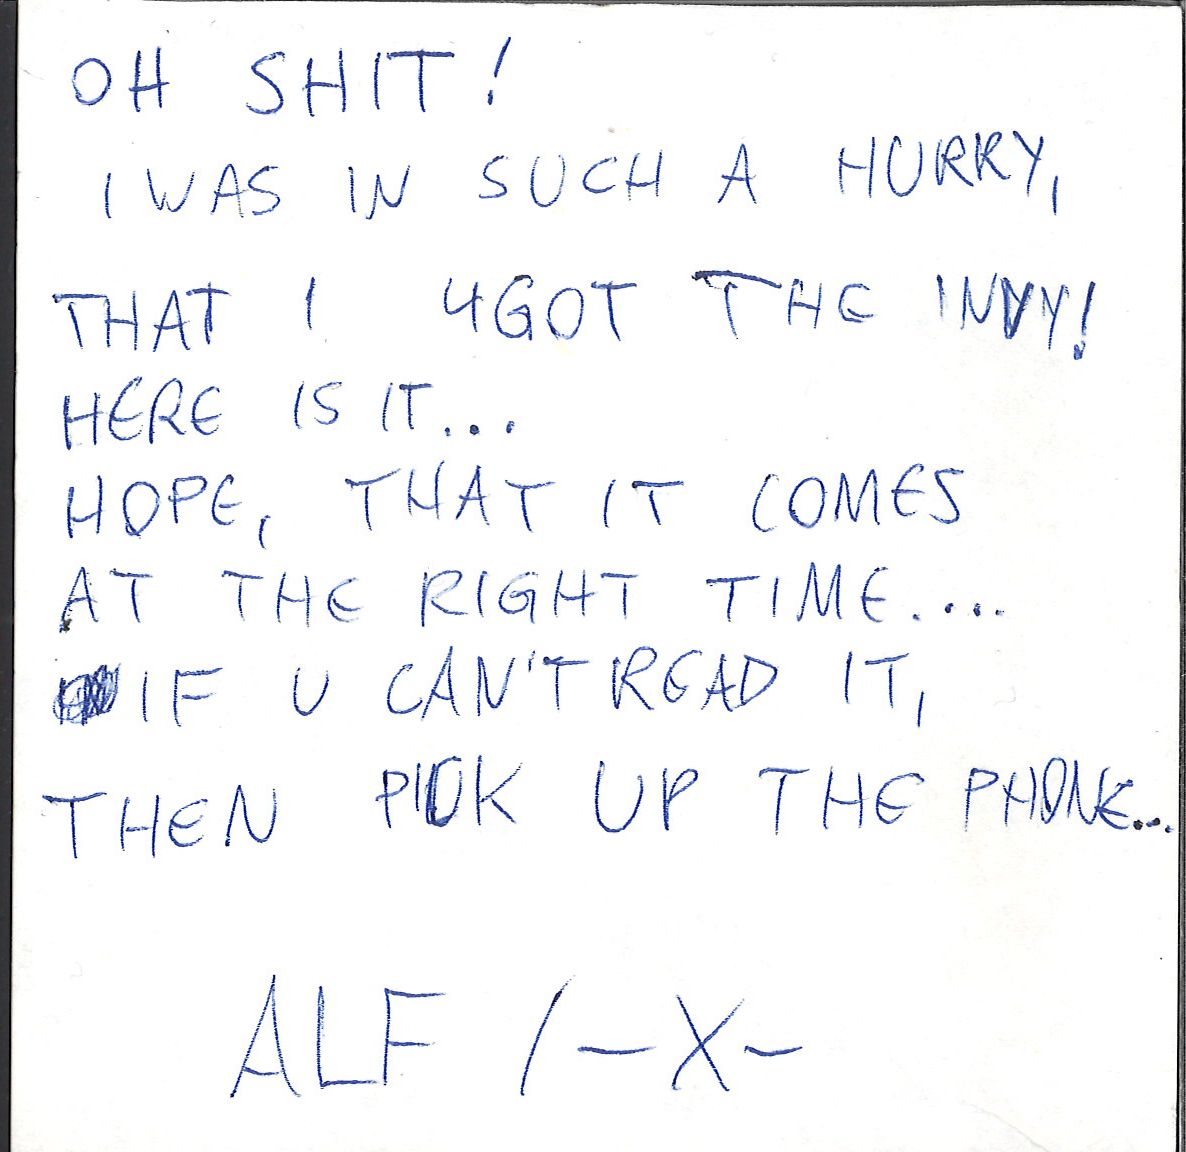 OH SHIT!
I WAS IN SUCH A HURRY,
THAT I 4GOT THE INVY!
HERE IS IT...
HOPE, THAT IT COMES
AT THE RIGHT TIME....
IF U CAN'T READ IT,
THEN PICK UP THE PHONE...
ALF /-X-